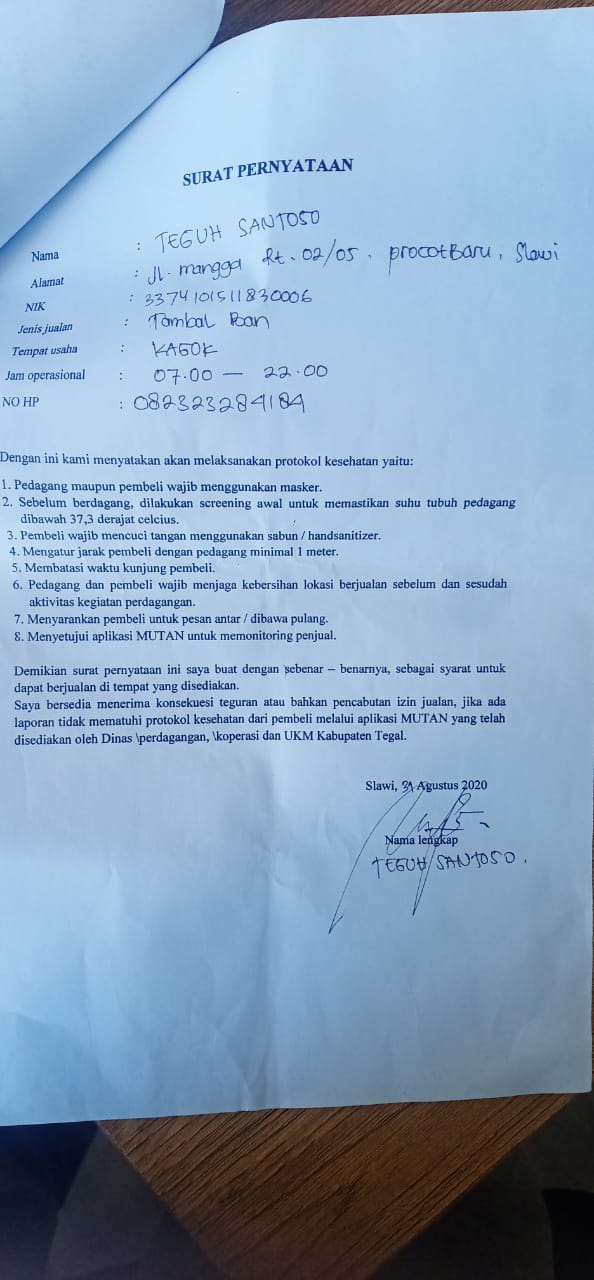 SURAT PERNYATAAN
Nama : TEGUH SANTOSO
Alamat : Jl. mangga Rt. 02/05. procotBaru, Slawi
NIK : 3374101511830006
Jenis jualan : Tambal Ban
Tempat usaha : KAGOK
Jam operasional : 07.00 – 22.00
NO HP : 082323284184
Dengan ini kami menyatakan akan melaksanakan protokol kesehatan yaitu:
1. Pedagang maupun pembeli wajib menggunakan masker.
2. Sebelum berdagang, dilakukan screening awal untuk memastikan suhu tubuh pedagang
dibawah 37,3 derajat celcius.
3. Pembeli wajib mencuci tangan menggunakan sabun / handsanitizer.
4. Mengatur jarak pembeli dengan pedagang minimal 1 meter.
5. Membatasi waktu kunjung pembeli.
6. Pedagang dan pembeli wajib menjaga kebersihan lokasi berjualan sebelum dan sesudah
aktivitas kegiatan perdagangan.
7. Menyarankan pembeli untuk pesan antar / dibawa pulang.
8. Menyetujui aplikasi MUTAN untuk memonitoring penjual.
Demikian surat pernyataan ini saya buat dengan sebenar – benarnya, sebagai syarat untuk
dapat berjualan di tempat yang disediakan.
Saya bersedia menerima konsekuesi teguran atau bahkan pencabutan izin jualan, jika ada
laporan tidak mematuhi protokol kesehatan dari pembeli melalui aplikasi MUTAN yang telah
disediakan oleh Dinas \perdagangan, \koperasi dan UKM Kabupaten Tegal.
Slawi, 31 Agustus 2020
Nama lengkap
TEGUH SANTOSO.